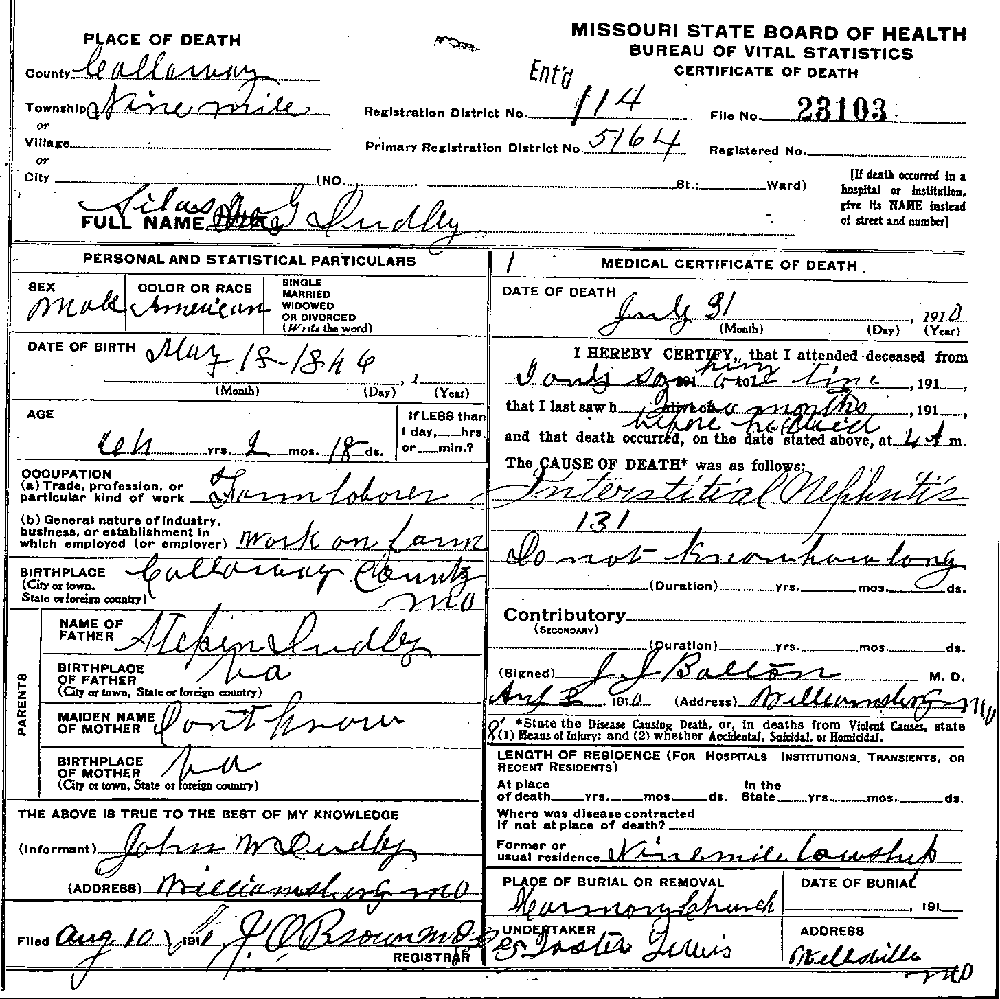 MISSOURI STATE BOARD OF HEALTH
BUREAU OF VITAL STATISTICS
CERTIFICATE OF DEATH
PLACE OF DEATH
County Callaway
Township Nine mile
or
Village
or
City (NO. St.; Ward)
Ent'd
Registration District No. 114
File No. 23103
Primary Registration District No 5164
Registered No.
[If death occurred in a
hospital or institution,
give its NAME instead
of street and number]
FULL NAME Silas G Dudley
PERSONAL AND STATISTICAL PARTICULARS
SEX
Male
COLOR OR RACE
American
SINGLE
MARRIED
WIDOWED
OR DIVORCED
(Write the word)
DATE OF BIRTH May 18-1846
(Month) (Day) , 1 (Year)
AGE
yrs. 2 mos. 18 ds.
If LESS than
1 day, hrs.
or min.?
OCCUPATION
(a) Trade, profession, or
particular kind of work Farm laborer
(b) General nature of industry,
business, or establishment in
which employed (or employer) work on farm
BIRTHPLACE
(City or town,
State or foreign country) Callaway County
Mo
PARENTS
NAME OF
FATHER Stephen Dudley
BIRTHPLACE
OF FATHER Va
(City or town, State or foreign country)
MAIDEN NAME
OF MOTHER Dont know
BIRTHPLACE
OF MOTHER Va
(City or town, State or foreign country)
THE ABOVE IS TRUE TO THE BEST OF MY KNOWLEDGE
(Informant) John M Dudley
(ADDRESS) Williamsburg Mo
Filed Aug 10 191 J.O. Brown M.D.
REGISTRAR
1
MEDICAL CERTIFICATE OF DEATH
DATE OF DEATH
July 31 , 1910
(Month) (Day) (Year)
I HEREBY CERTIFY, that I attended deceased from
I only saw him one time , 191 ,
that I last saw h two months , 191 ,
before he died
and that death occurred, on the date stated above, at 4 A m.
The CAUSE OF DEATH* was as follows:
Interstitial Nephritis
131
Do not know how long
(Duration) yrs. mos. ds.
Contributory
(SECONDARY)
(Duration) yrs. mos. ds.
(Signed) J J Bolton M. D.
Aug 1910 (Address) Williamsburg Mo
*State the Disease Causing Death, or, in deaths from Violent Causes, state
(1) Means of Injury; and (2) whether Accidental, Suicidal, or Homicidal.
LENGTH OF RESIDENCE (FOR HOSPITALS INSTITUTIONS, TRANSIENTS, OR
RECENT RESIDENTS)
At place
of death yrs. mos. ds.
In the
State yrs. mos. ds.
Where was disease contracted
if not at place of death?
Former or
usual residence Nine mile township
PLACE OF BURIAL OR REMOVAL
Harmony Church
DATE OF BURIAL
, 191
UNDERTAKER
Foster Lewis
ADDRESS
Wellsville
Mo